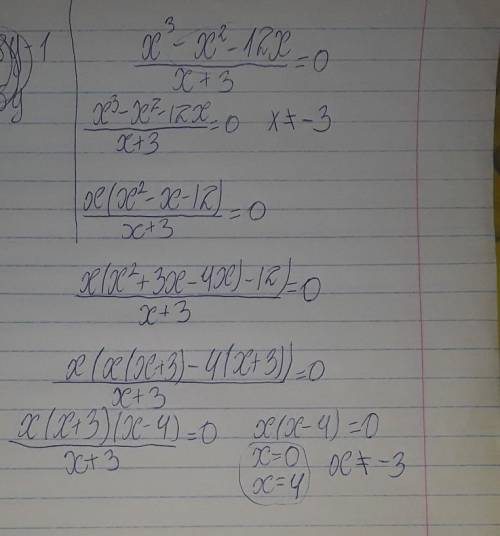 x³ - x² - 12x / x + 3 = 0
x³ - x² - 12x / x + 3 = 0 x ≠ -3
x(x² - x - 12) / x + 3 = 0
x(x² + 3x - 4x) - 12) / x + 3 = 0
x(x(x+3) - 4(x+3)) / x + 3 = 0
x(x+3)(x-4) / x + 3 = 0 x(x-4) = 0
x = 0
x = 4 x ≠ -3